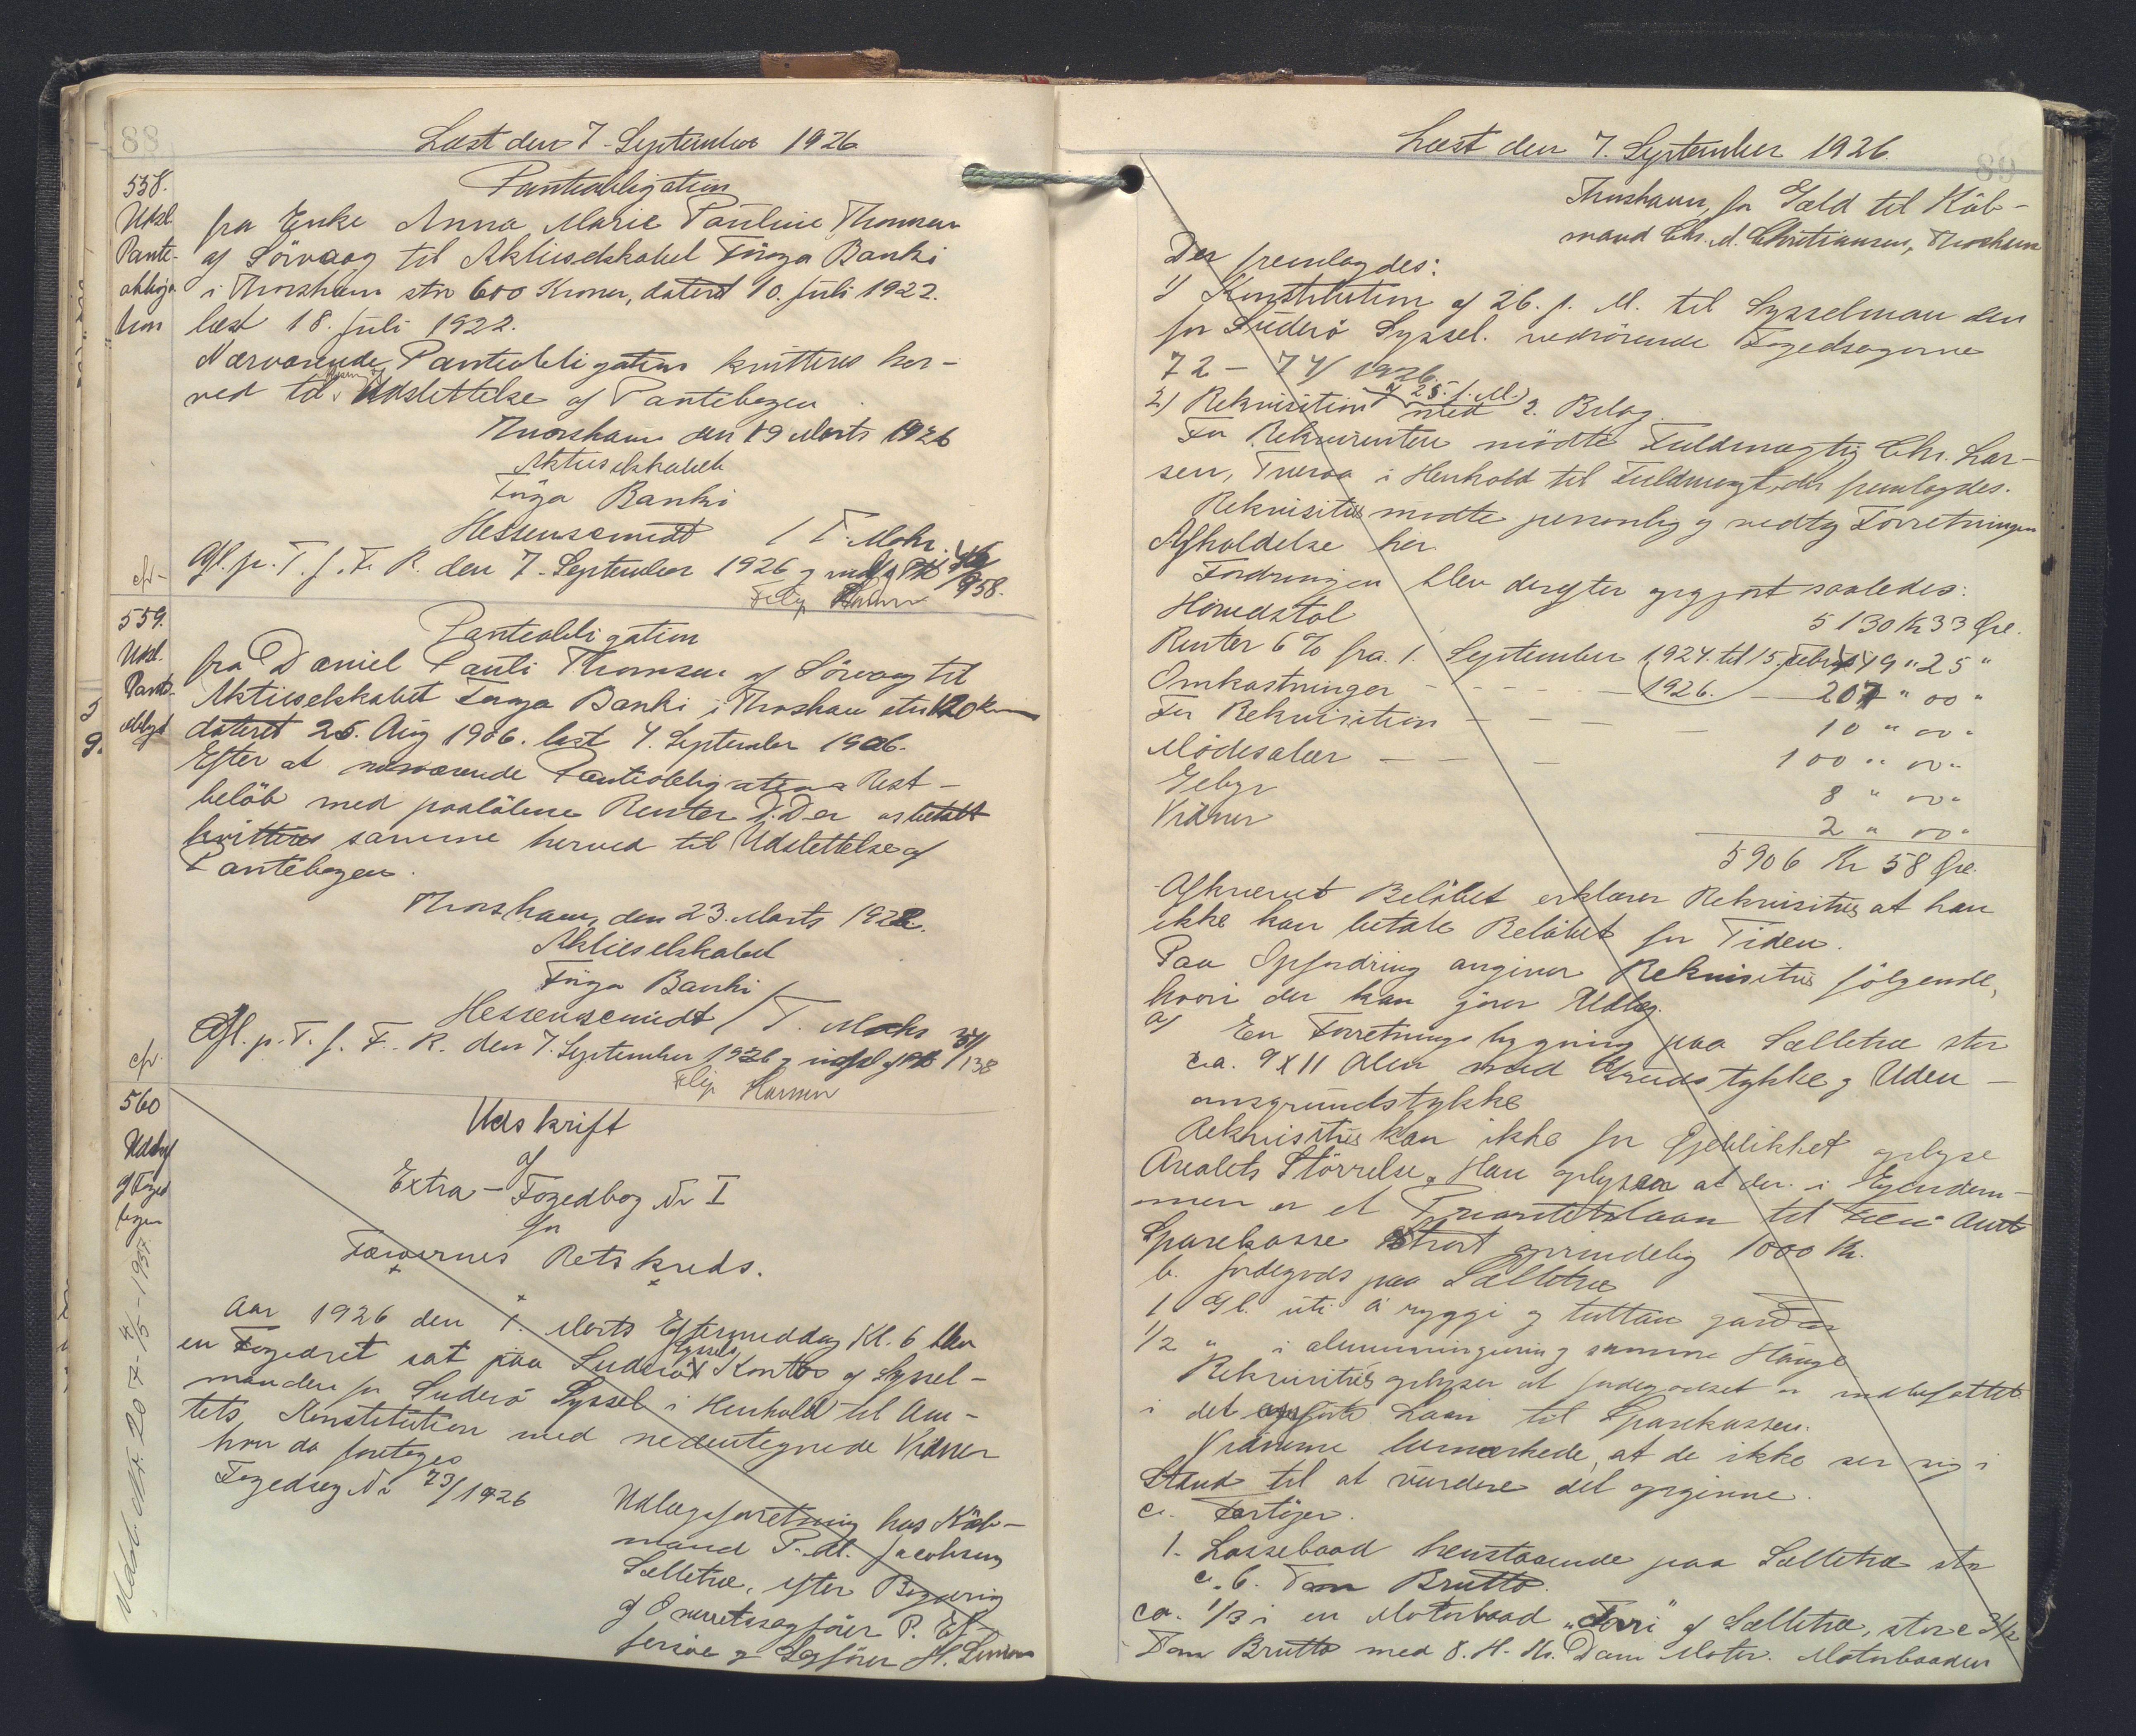 88
Læst den 7. September 1926
558.
Udsl.
Pante-
obliga
tion
Pantobligation
fra Enke Anna Marie Pauline Thomsen
af Sörvaag til Aktieselskabet Föroya Banki
i Thorshavn stor 600 Kroner, dateret 10. Juli 1922.
læst 18. Juli 1922.
Nærværende Panteobligation kvitteres her-
ved til Udslettelse af Pantebogen
Thorshavn den 19 Marts 1926
Aktieselskabet
Föroya Banki
Hessenscmidt / T. Mohr.
Afl. p. T. f. F. R. den 7. September 1926 958.
559.
Udsl.
Pante-
obligt
Panteobligation
fra Daniel Pauli Thomsen af Sörvaag til
Aktieselskabet Föroya Banki i Thorshavn stor 1120 Kroner
dateret 25. Aug 1906. læst 4. September 1906.
Efter at nærværende Panteobligations Rest-
belöb med paalöbne Renter D. D. er betalt
kvitteres samme herved til Udslettelse af
Pantebogen.
Thorshavn, den 23. Marts 1922.
Aktieselskabet
Föroya Banki
Hessenscmidt / T. Mohr
Afl. p. T. f. F. R. den 7. September 1926 138
560
Udskrift
af
Extra-Fogedbog Nr I
for
Færøernes Retskreds.
Aar 1926 den 1. Marts Eftermiddag Kl. 6 blev
en Fogedret sat paa Suderö Syssels Kontor af Syssel-
manden for Suderö Syssel i Henhold til Am-
tets Konstitution med nedentegnede Vidner
hvor da foretoges
Fogedsag Nr 73/1926
Udlægsforretning hos Köb-
mand P. M. Jacobsen,
Selletræ, efter Begæring
af Overretssagförer P. Ef-
fersöe og Sagförer
Udsl. Nr. 207-4/5-1937.
89
Læst den 7. September 1926.
Thorshavn, for Gæld til Köb-
mand Chr. M. Christiansen, Thorshavn
Der fremlagdes:
1) Konstitution af 26. f. M. til Sysselmanden
for Suderö Syssel. vedrörende Fogedsagerne
72 - 74/1926.
2) Rekvisition af 25. f. M. med 2. Bilag.
For Rekvirenten mödte Fuldmægtig Chr. Lar-
sen, Tveraa i Henhold til Fuldmagt, der fremlagdes.
Rekvisitus mödte personlig og vedtog Forretningens
Afholdelse her.
Fordringen blev derefter opgjort saaledes:
Hovedstol 5130 Kr 33 Øre.
Renter 6% fra. 1. September 1924. til 15. Febru 449 " 25 "
Omkostninger - - - - - 1926. - 207 " 00 "
For Rekvisition - - - 10 " 00 "
Mödesalær - - - 100 " 00 "
Gebyr 8 " 00 "
Vidner 2 " 00 "
5906 Kr 58 Øre.
Afkrævet Belöbet erklærer Rekvisitus at han
ikke kan betale Belöbet for Tiden.
Paa Opfordring angiver Rekvisitus fölgende,
hvori der kan göres Udlæg.
a) En Forretningsbygning paa Selletræ stor
c.a. 9 x 11 Alen med Grundstykke og Uden-
omsgrundstykke
Rekvisitus kan ikke for Öjeblikket oplyse
Arealets Störrelse. Han oplyser at der i Ejendom-
men er et Prioritetslaan til Færö Amts
Sparekasse stort oprindelig 1000 Kr.
b. Jordegods paa Selletræ
1 Gl. úti á ryggi og
1/2 " i samme Hauge
Rekvisitus oplyser at Jordegodset er indbefattet
i det anförte Laan til Sparekassen.
Vidnerne bemærkede, at de ikke ser sig i
Stand til at vurdere det opgivne.
c. Fartöjer.
1. Lossebaad henstaaende paa Selletræ stor
c. 6. Tons Brutto.
ca. 1/3 i en Motorbaad af Selletræ, stor c 3 1/2
Tons Brutto med 8. H. Kr. Dan Motor. Motorbaaden